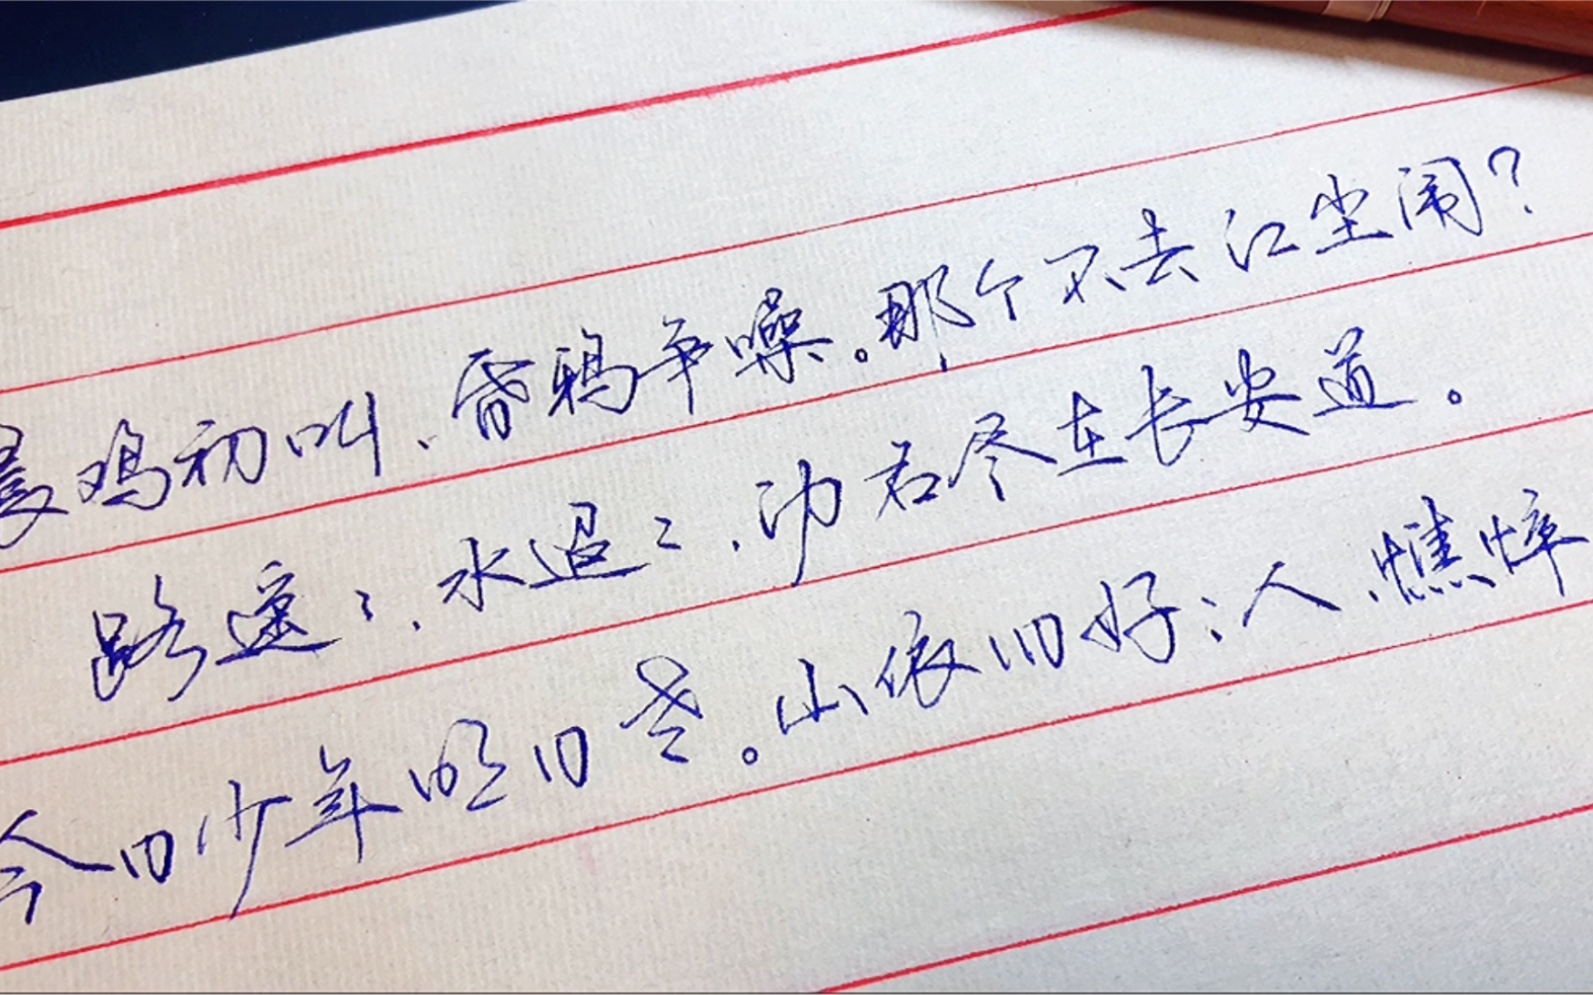 晨鸡初叫、昏鸦争噪。那个不去红尘闹？
路遥々、水迢々、功名尽在长安道。
今日少年明日老。山依旧好；人、憔悴